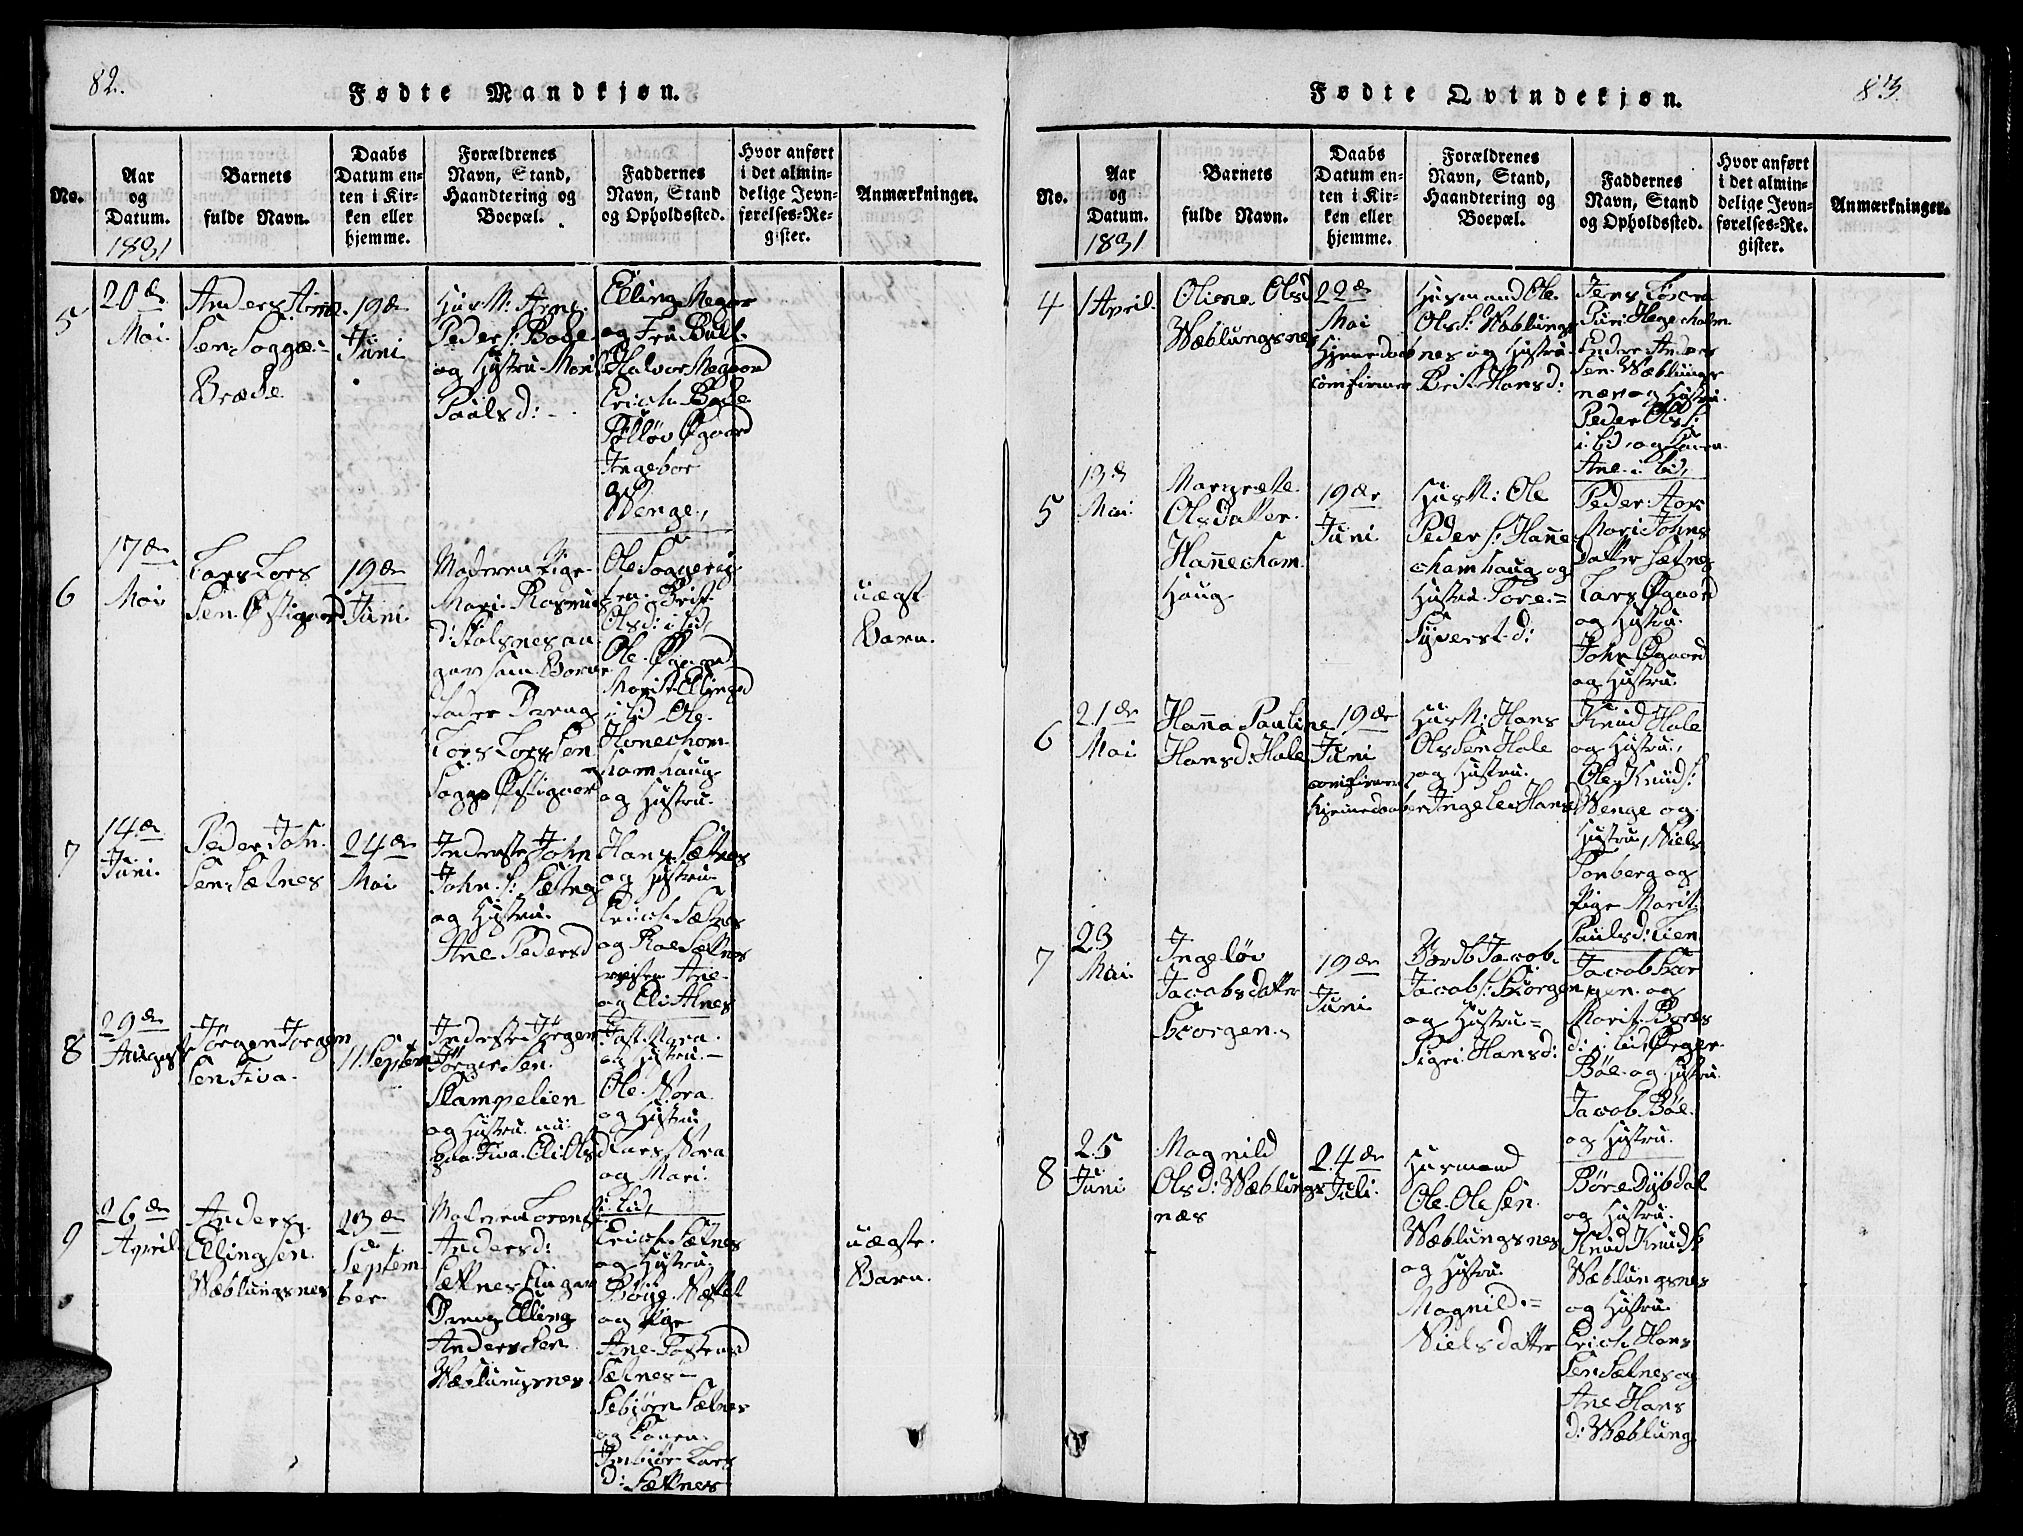 82.
Fødte Mandkjøn.
No.
Aar
og
Datum.
1831
Barnets
fulde Navn.
Daabs
Datum en-
ten i Kir-
ken eller
hjemme.
Forældrenes
Navn, Stand,
Haandtering og
Boepæl.
Faddernes
Navn, Stand
og Opholdssted.
Hvor anført
i det almin-
delige Jevn-
førelses-Re-
gister.
Anmærkninger.
5
20de
Mai
Anders Arne
Sen Sogge-
Bræde
19de
Juni
HusM: Arne
Peder S: Bode
og Hustru Marit
Paalsd:
Elling Megor
og Fru Bull.
Halvor Megaard
Erich Bode
Øgaard
Ingebor
Wenge,
6
17de
Mai
Lars Lars
Sen Østigaard
19de
Juni
Moderen Pige
Mari Rasmus
d: Stolsnes an
giver som Barne
fader Dreng
Lars Lars Sen
Sogge Østigaar
Ole Soggeeig
Brit
Olsd: i Lid,
Ole Øgaard
Marit Ellingsd
i Lid Ole
Honecham
hamhaug
og Hustru.
uægt
Barn.
7
14de
Juni
Peder John
Sen Sætnes
24de
Mai
Inderste John
John S: Sætnes
og Hustru
Ane Pedersd
Hans Sætnes
og Hustru
Erich Sætnes
og Roe Sætnes
Ane
og Eli Alnes
8
29de
August
Jørgen Jorgen
Sen Fiva.
11 Septem
Inderste Jørgen
Jørgen Sen
Stampelien
og Hustru nu
paa Fiva. Eli Olsd
Nora
og Hustru
Ole Nora
og Hustru
Lars Nora
og Mari
i Lid,
9
26de
April
Anders
Ellingsen
Wæblungsnes
13de
Septem
ber
Moderen Lorens
Andersd:
Sætnes
Dreng Elling
Anders Sen
Wæblungsnes
Erich Sætnes
og Hustru
og Pige
Ane Tostensd
Sætnes
Sebjørn Sætnes
og Konen
Lars
d: Sætnes
uægte
Barn.
83.
Fødte Qvindekjøn.
No.
Aar
og
Datum.
1831
Barnets
fulde Navn.
Daabs
Datum en-
ten i Kir-
ken eller
hjemme.
Forældrenes
Navn, Stand,
Haandtering og
Boepæl.
Faddernes
Navn, Stand
og Opholdssted.
Hvor anført
i det almin-
delige Jevn-
førelses-Re-
gister.
Anmærkninger.
4
1 April.
Oliane Olsd
Wæblungsnes
22de
Mai
Hjemedaab
comfirmer
Husmand Ole
Ols S: Wæblungs
nes og Hustru
Brit Hansd:
Jens
Endre Anders
Sen Wæblungs
næs og Hustru.
Peder Ols S:
i Lid og Konen
Ane i Lid,
5
13de
Mai
Margrete
Olsdatter
Hannecham
Haug
19de
Juni
HusM: Ole
Peder S: Hanne
chamhaug og
Hustru Tore =
Syverst d:
Peder Aor
Mari Johns
datter Sætnes
Lars Øgaard
og Hustru
John Øgaard
og Hustru
6
21de
Mai
Hanna Pauline
Hansd: Hole
19de
Juni
comfirmert
Hjemedaaben
HusM: Hans
Olssen Hole
og Hustru
Ingele Hansd
Knud Hole
og Hustru,
Ole Knud S:
Wenge og
Hustru, Niels
Tonberg og
Pige Marit
Paulsd: Lien
7
23
Mai
Ingeløv
Jacobsdatter
Skorgen
19de
Juni
Jacob
Jacob S: Skorgen
og Hustru =
Sigri Hansd:
Jacob Skor
gen og
Marit Bores
d: i Lid,
Bøe og Hustru
Jacob Bøe
og Hustru.
8
25
Juni
Magnild
Olsd: Wæblungs
næs
24de
Juli.
Husmand
Ole Ole Sen
Wæblungsnes
og Hustru
Magnild =
Nielsdatter
Børe Dybdal
og Hustru
Knud Knud S
Wæblungsnes
og Hustru
Erich Hans
Sen Sætnes og
Ane Hans
d: Wæblung